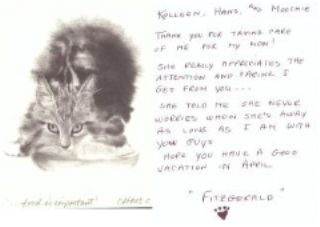 Kolleen, Hans, and Moochie
Thank you for taking care
of me for my mom!
She really appreciates the
attention and caring I
get from you...
She told me she never
worries when she's away
as long as I am with
you guys
Hope you have a good
vacation in April
"Fitzgerald"
food is important"